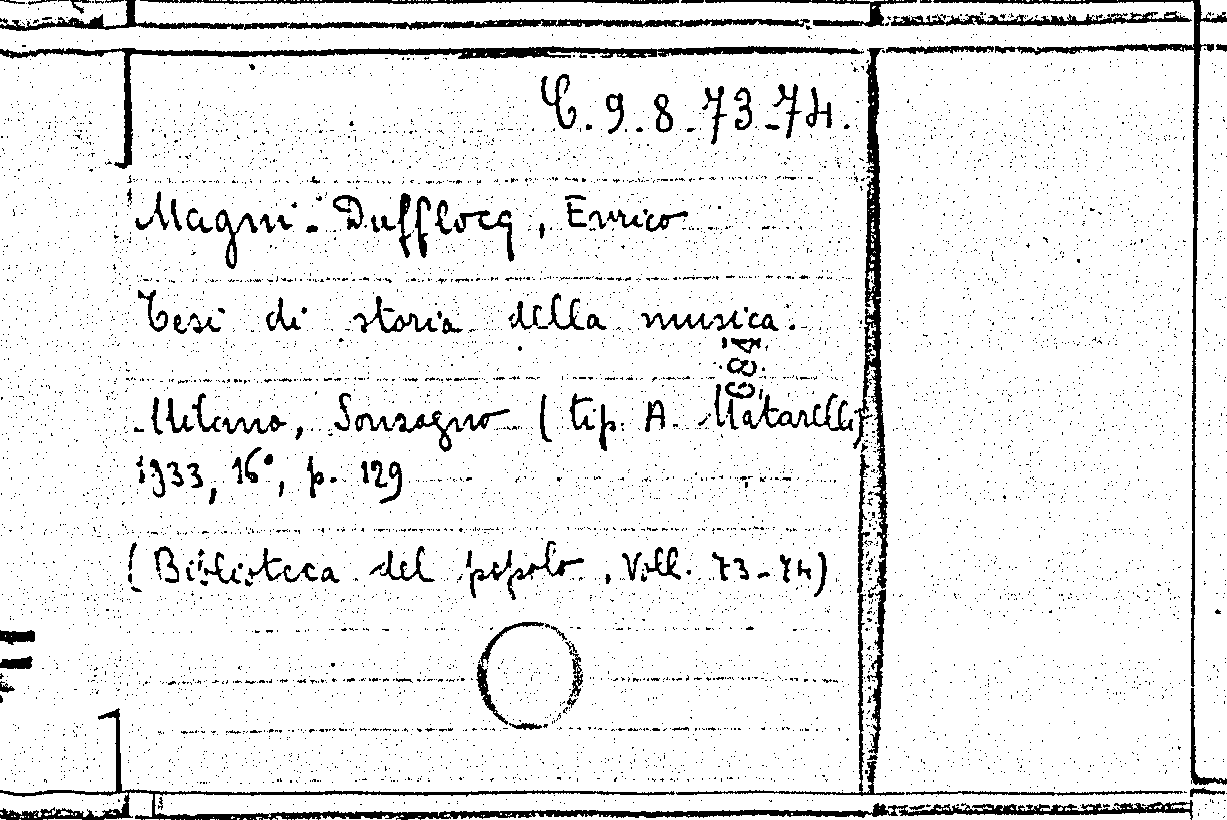 C. 9. 8. 73-74.
Magni-Dufflocq, Enrico
Tesi di storia della musica.
684
Milano, Sonzogno (tip. A. Matarelli)
1933, 16°, p. 129
(Biblioteca del popolo, Voll. 73-74)